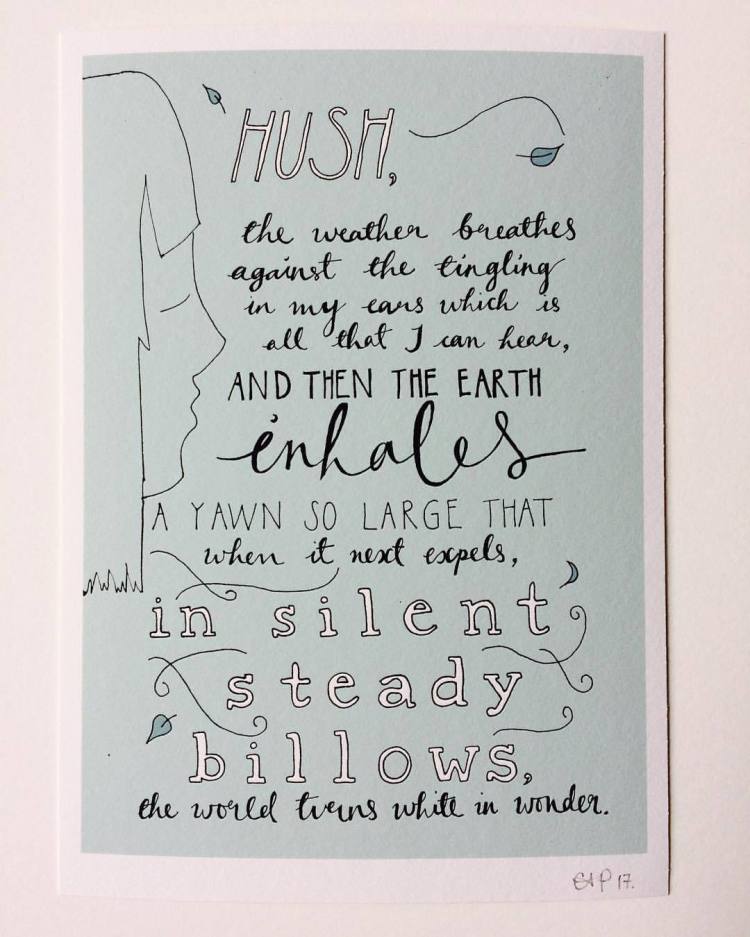 HUSH,
the weather breathes
against the tingling
in my ears which is
all that I can hear,
AND THEN THE EARTH
inhales
A YAWN SO LARGE THAT
when it next expels,
in silent
steady
billows,
the world turns white in wonder.
17.